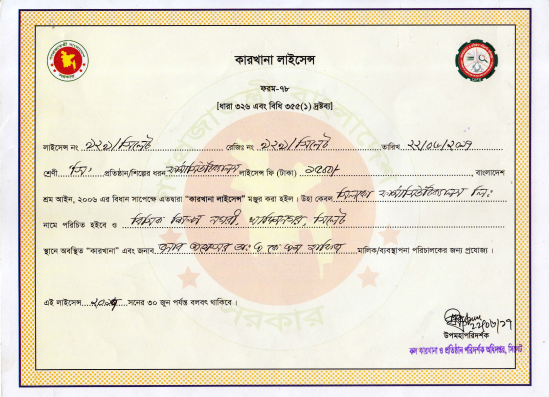 কারখানা লাইসেন্স
ফরম-৭৮
[ধারা ৩২৬ এবং বিধি ৩৫৫(১) দ্রষ্টব্য]
লাইসেন্স নং ২২২/সিলেট রেজিঃ নং ২২২/সিলেট তারিখ
শ্রেণী প্রতিষ্ঠান/শিল্পের ধরন ফার্মাসিউটিক্যালস লাইসেন্স ফি (টাকা) বাংলাদেশ
শ্রম আইন, ২০০৬ এর বিধান সাপেক্ষে এতদ্বারা "কারখানা লাইসেন্স" মঞ্জুর করা হইল। উহা কেবল ফার্মাসিউটিক্যালস লিঃ
নামে পরিচিত হইবে ও বিসিক শিল্প নগরী, খাদিমনগর, সিলেট
স্থানে অবস্থিত "কারখানা" এবং জনাব মালিক/ব্যবস্থাপনা পরিচালকের জন্য প্রযোজ্য।
এই লাইসেন্স সনের ৩০ জুন পর্যন্ত বলবৎ থাকিবে।
উপমহাপরিদর্শক
কল কারখানা ও প্রতিষ্ঠান পরিদর্শন অধিদপ্তর, সিলেট